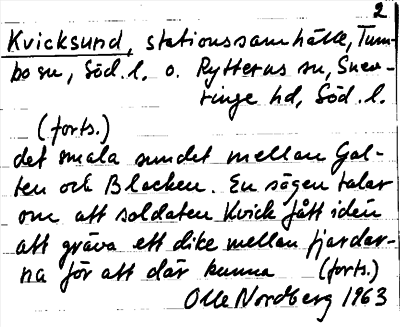 2
Kvicksund, stationssamhälle, Tum-
bo sn, Söd. l. o. Rytterns sn, Snev-
ringe hd, Söd. l.
(forts.)
det smala sundet mellan Gal-
ten och Blacken. En sägen talar
om att soldaten Kvick fått idén
att gräva ett dike mellan fjärdar-
na för att där kunna (forts.)
Olle Nordberg 1963